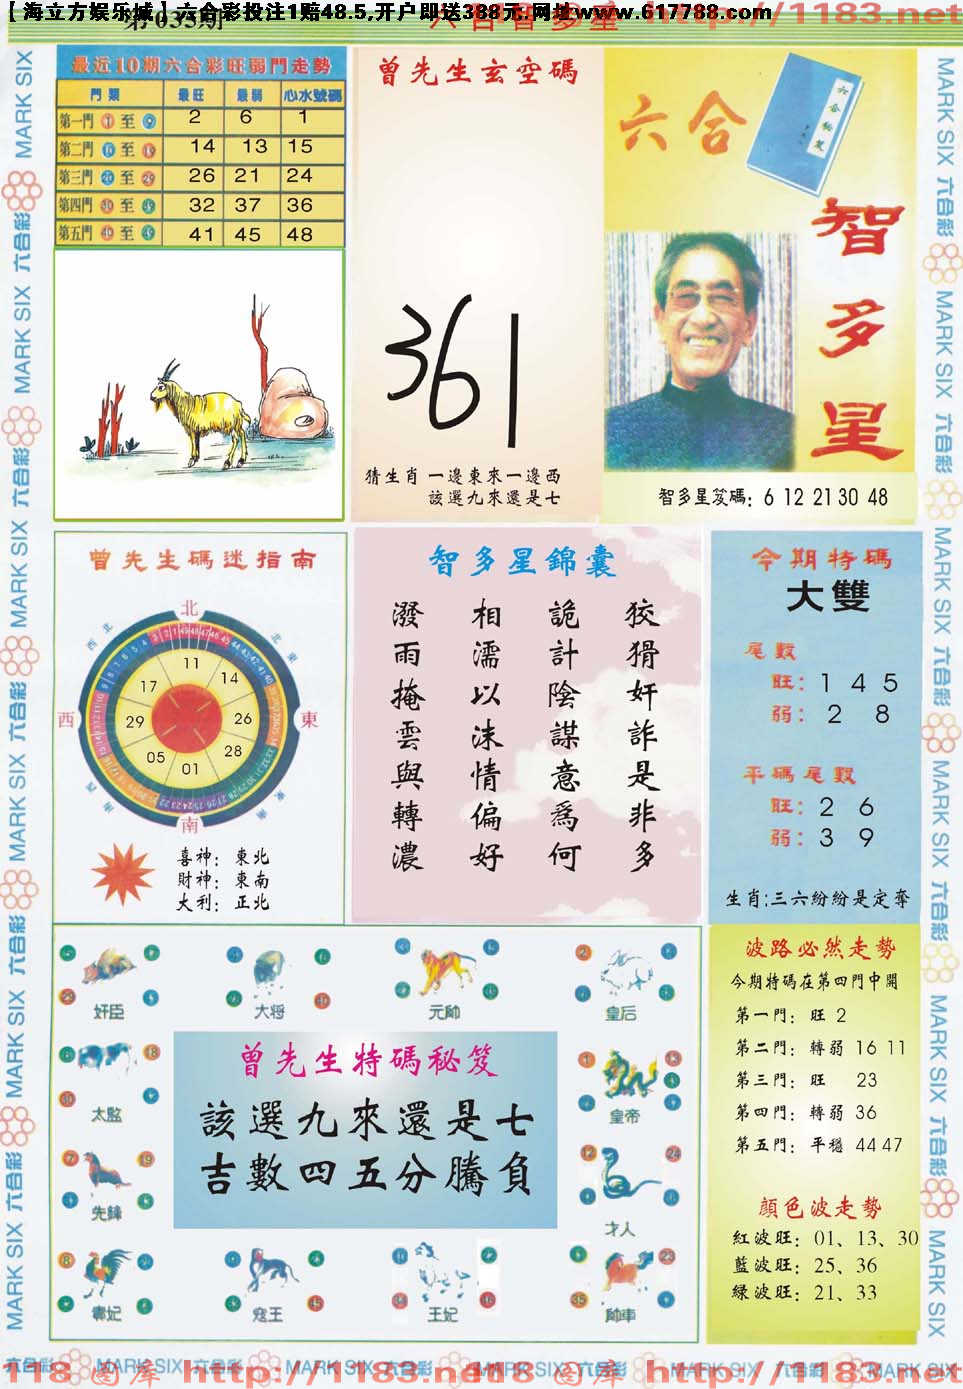 【海立方娱乐城】六合彩投注1赔48.5,开户即送388元..网址www.617788.com
第035期
六合智多星
http://1183.net
最近10期六合彩旺弱門走勢
門類 最旺 最弱 心水號碼
第一門 1 至 9 2 6 1
第二門 10 至 19 14 13 15
第三門 20 至 29 26 21 24
第四門 30 至 39 32 37 36
第五門 40 至 49 41 45 48
曾先生玄空碼
361
猜生肖 一邊東來一邊西
該選九來還是七
六合
六合秘笈
智多星
智多星笈碼: 6 12 21 30 48
曾先生碼迷指南
北
東
南
西
東北
東南
西南
西北
11
14
26
28
01
05
29
17
喜神: 東北
財神: 東南
大利: 正北
智多星錦囊
狡猾奸詐是非多
詭計陰謀意為何
相濡以沫情偏好
潑雨掩雲與轉濃
今期特碼
大雙
尾數
旺: 1 4 5
弱: 2 8
平碼尾數
旺: 2 6
弱: 3 9
生肖:三六紛紛是定奪
奸臣
大将
元帥
皇后
太監
皇帝
先鋒
才人
貴妃
寇王
王妃
帥車
曾先生特碼秘笈
該選九來還是七
吉數四五分騰負
波路必然走勢
今期特碼在第四門中開
第一門: 旺 2
第二門: 轉弱 16 11
第三門: 旺 23
第四門: 轉弱 36
第五門: 平穩 44 47
顏色波走勢
紅波旺: 01、13、30
藍波旺: 25、36
綠波旺: 21、33
MARK SIX 六合彩
118 图库 http://1183.net
118 图库 http://1183.net